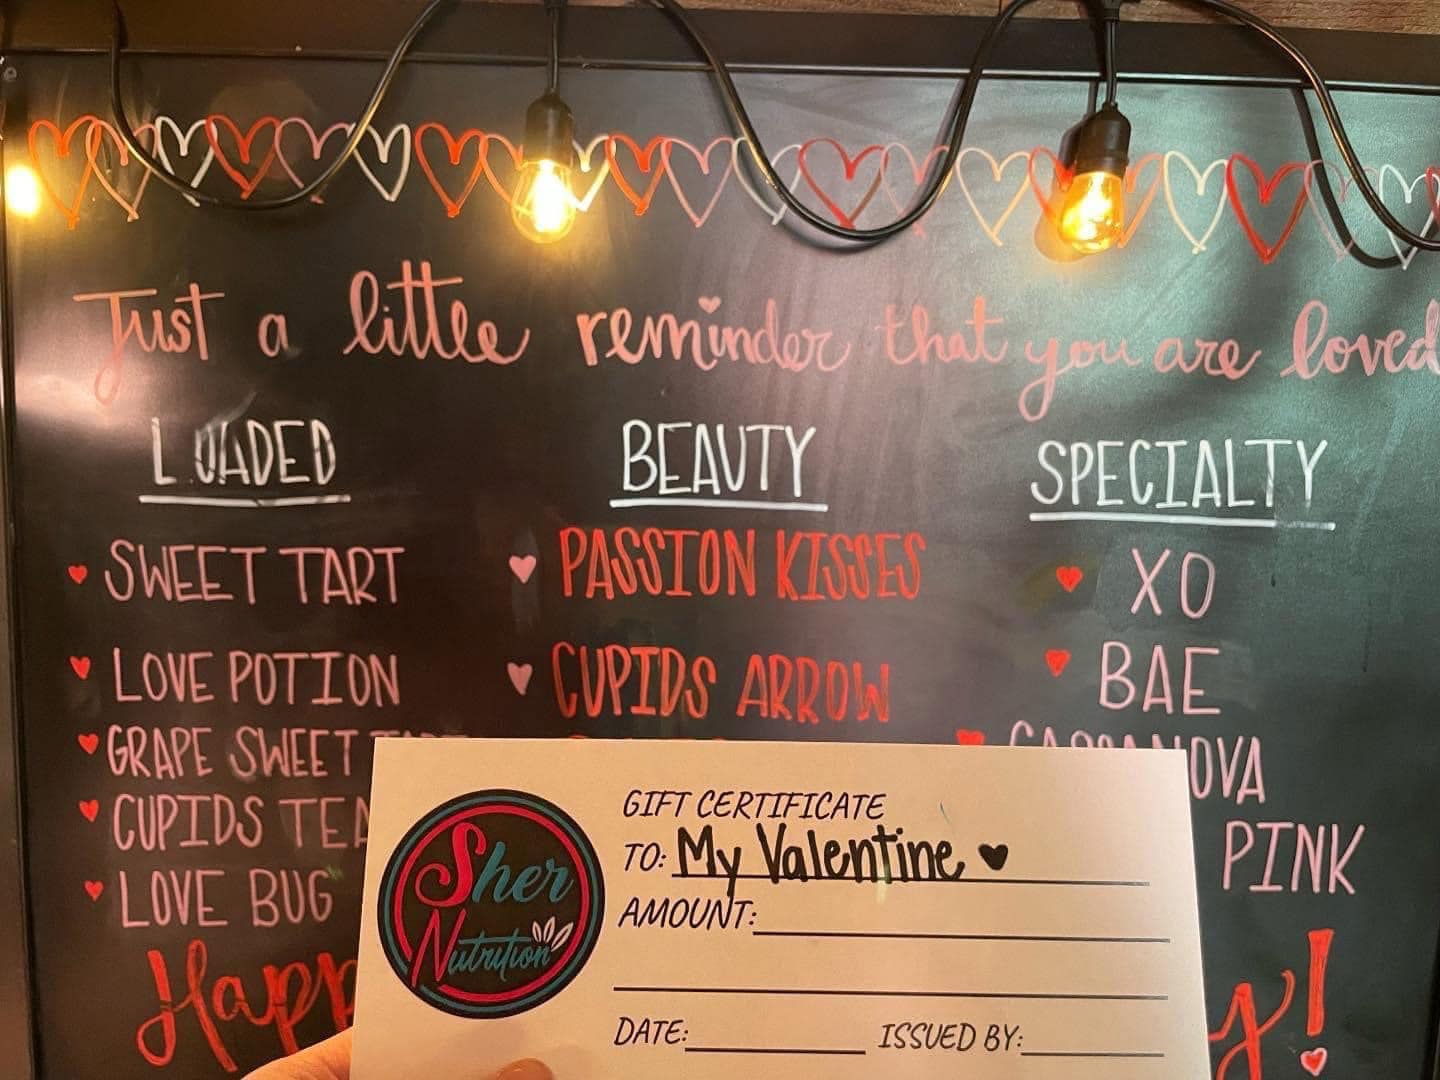 Just a little reminder that you are loved
LOADED
SWEET TART
LOVE POTION
GRAPE SWEET
CUPIDS TEA
LOVE BUG
BEAUTY
PASSION KISSES
CUPIDS ARROW
SPECIALTY
XO
BAE
CASSANOVA
PINK
Happ
y!
Sher
Nutrition
GIFT CERTIFICATE
TO: My Valentine
AMOUNT:
DATE: ISSUED BY: